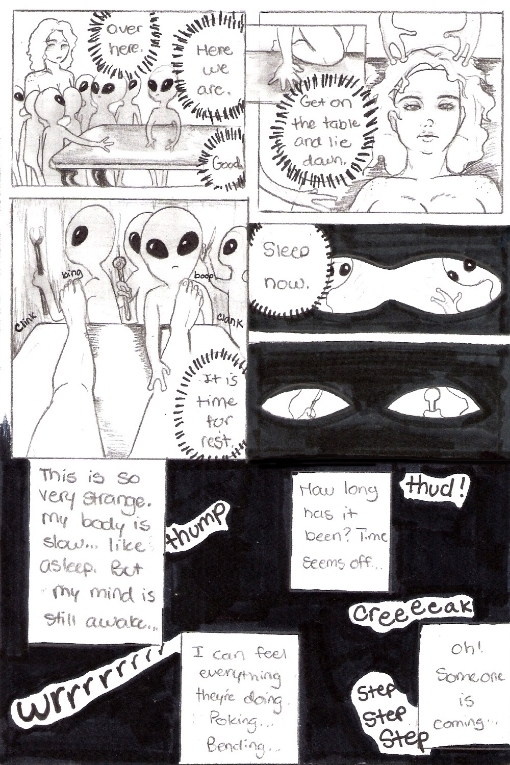 over
here.
Here
we
are.
Good
Get on
the table
and lie
down.
bing
boop
clink
clank
It is
time
for
rest.
Sleep
now.
This is so
very strange.
my body is
slow... like
asleep. But
my mind is
still awake...
thump
How long
has it
been? Time
seems off...
thud!
creeeeak
wrrrrrrrr
I can feel
everything
they're doing.
Poking...
Bending...
step
step
step
Oh!
Someone
is
coming...